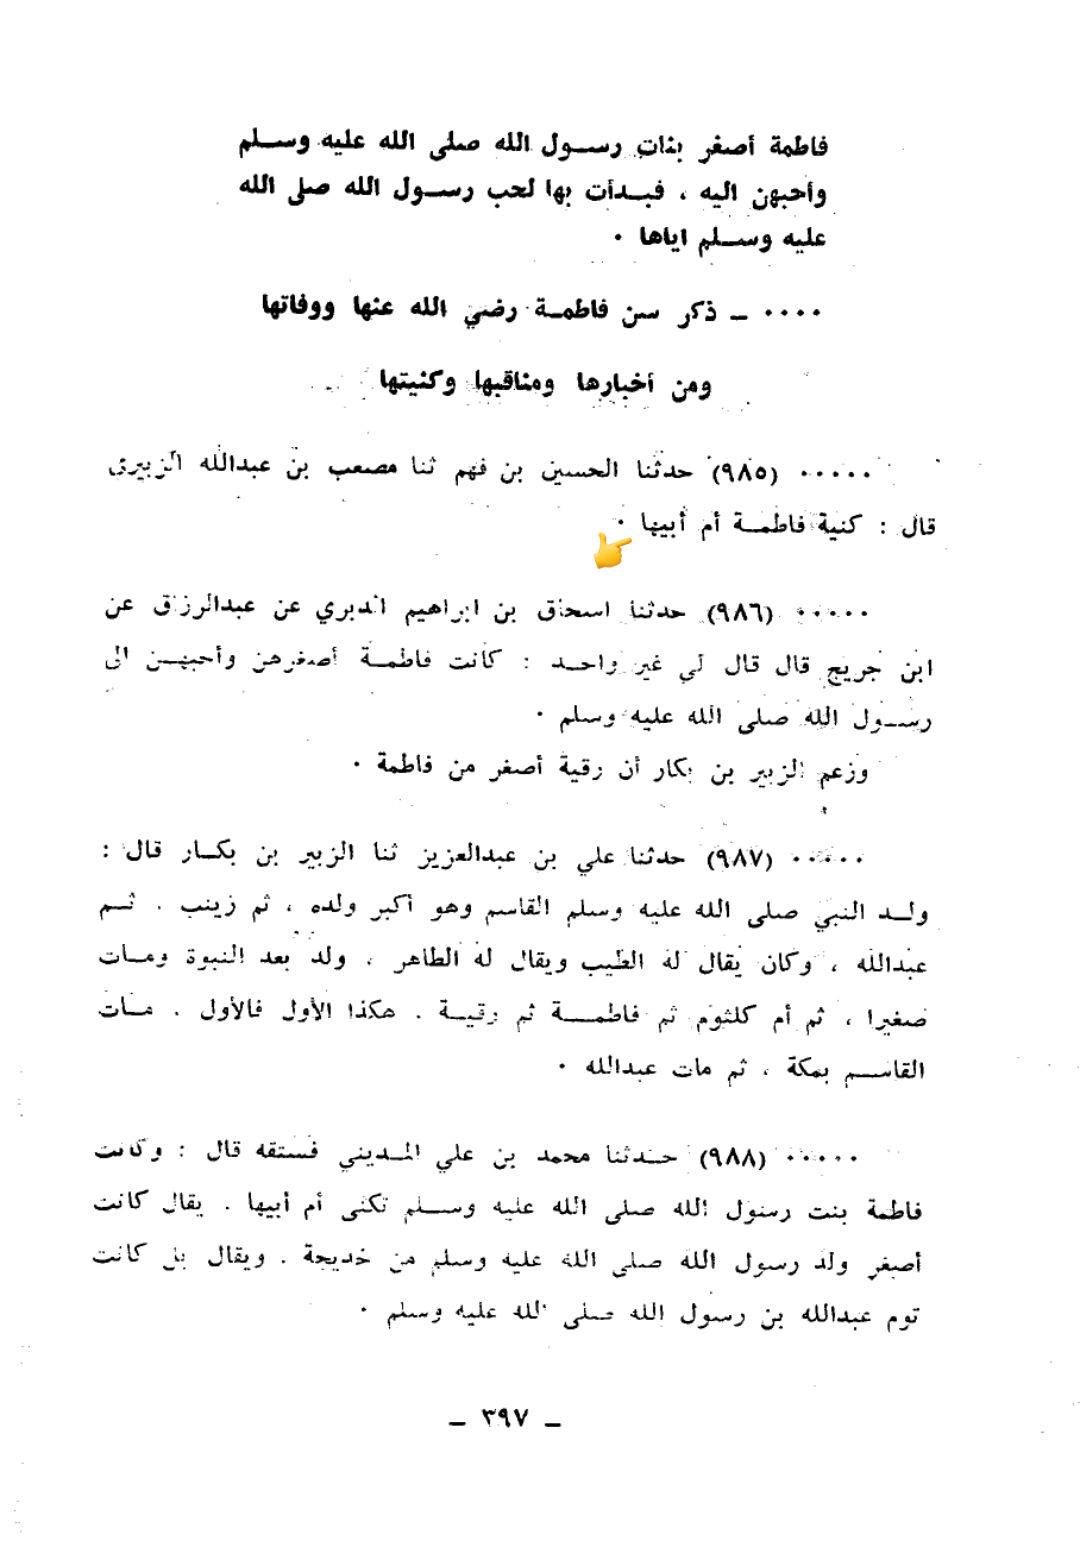 فاطمة أصغر بنات رسول الله صلى الله عليه وسلم
وأحبهن اليه ، فبدأت بها لحب رسول الله صلى الله
عليه وسلم اياها .
٠٠٠٠ ـ ذكر سن فاطمة رضي الله عنها ووفاتها
ومن أخبارها ومناقبها وكنيتها
٠٠٠٠٠ (٩٨٥) حدثنا الحسين بن فهم ثنا مصعب بن عبدالله الزبيرى
قال : كنية فاطمة أم أبيها .
٠٠٠٠٠ (٩٨٦) حدثنا اسحاق بن ابراهيم الدبري عن عبدالرزاق عن
ابن جريج قال قال لي غير واحد : كانت فاطمة أصغرهن وأحبهن الى
رسول الله صلى الله عليه وسلم .
وزعم الزبير بن بكار أن رقية أصغر من فاطمة .
٠٠٠٠٠ (٩٨٧) حدثنا علي بن عبدالعزيز ثنا الزبير بن بكار قال :
ولد النبي صلى الله عليه وسلم القاسم وهو أكبر ولده ، ثم زينب . ثم
عبدالله ، وكان يقال له الطيب ويقال له الطاهر ، ولد بعد النبوة ومات
صغيرا ، ثم أم كلثوم ثم فاطمة ثم رقية . هكذا الأول فالأول . مات
القاسم بمكة ، ثم مات عبدالله .
٠٠٠٠٠ (٩٨٨) حدثنا محمد بن علي المديني فستقه قال : وكانت
فاطمة بنت رسول الله صلى الله عليه وسلم تكنى أم أبيها . يقال كانت
أصغر ولد رسول الله صلى الله عليه وسلم من خديجة . ويقال بل كانت
توم عبدالله بن رسول الله صلى الله عليه وسلم .
ـ ٣٩٧ ـ